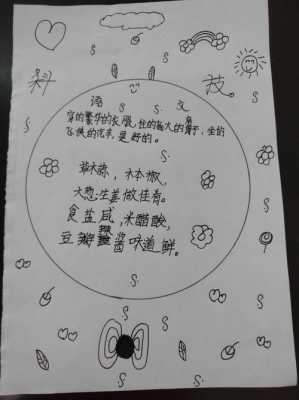 科 技
语 文
穿的繁华的衣服,住的高大的房子,坐的
飞快的汽车,是野的。
草木棕,木本椒,
大葱生姜做佳肴。
食盐咸,米醋酸,
豆瓣辣酱味道鲜。